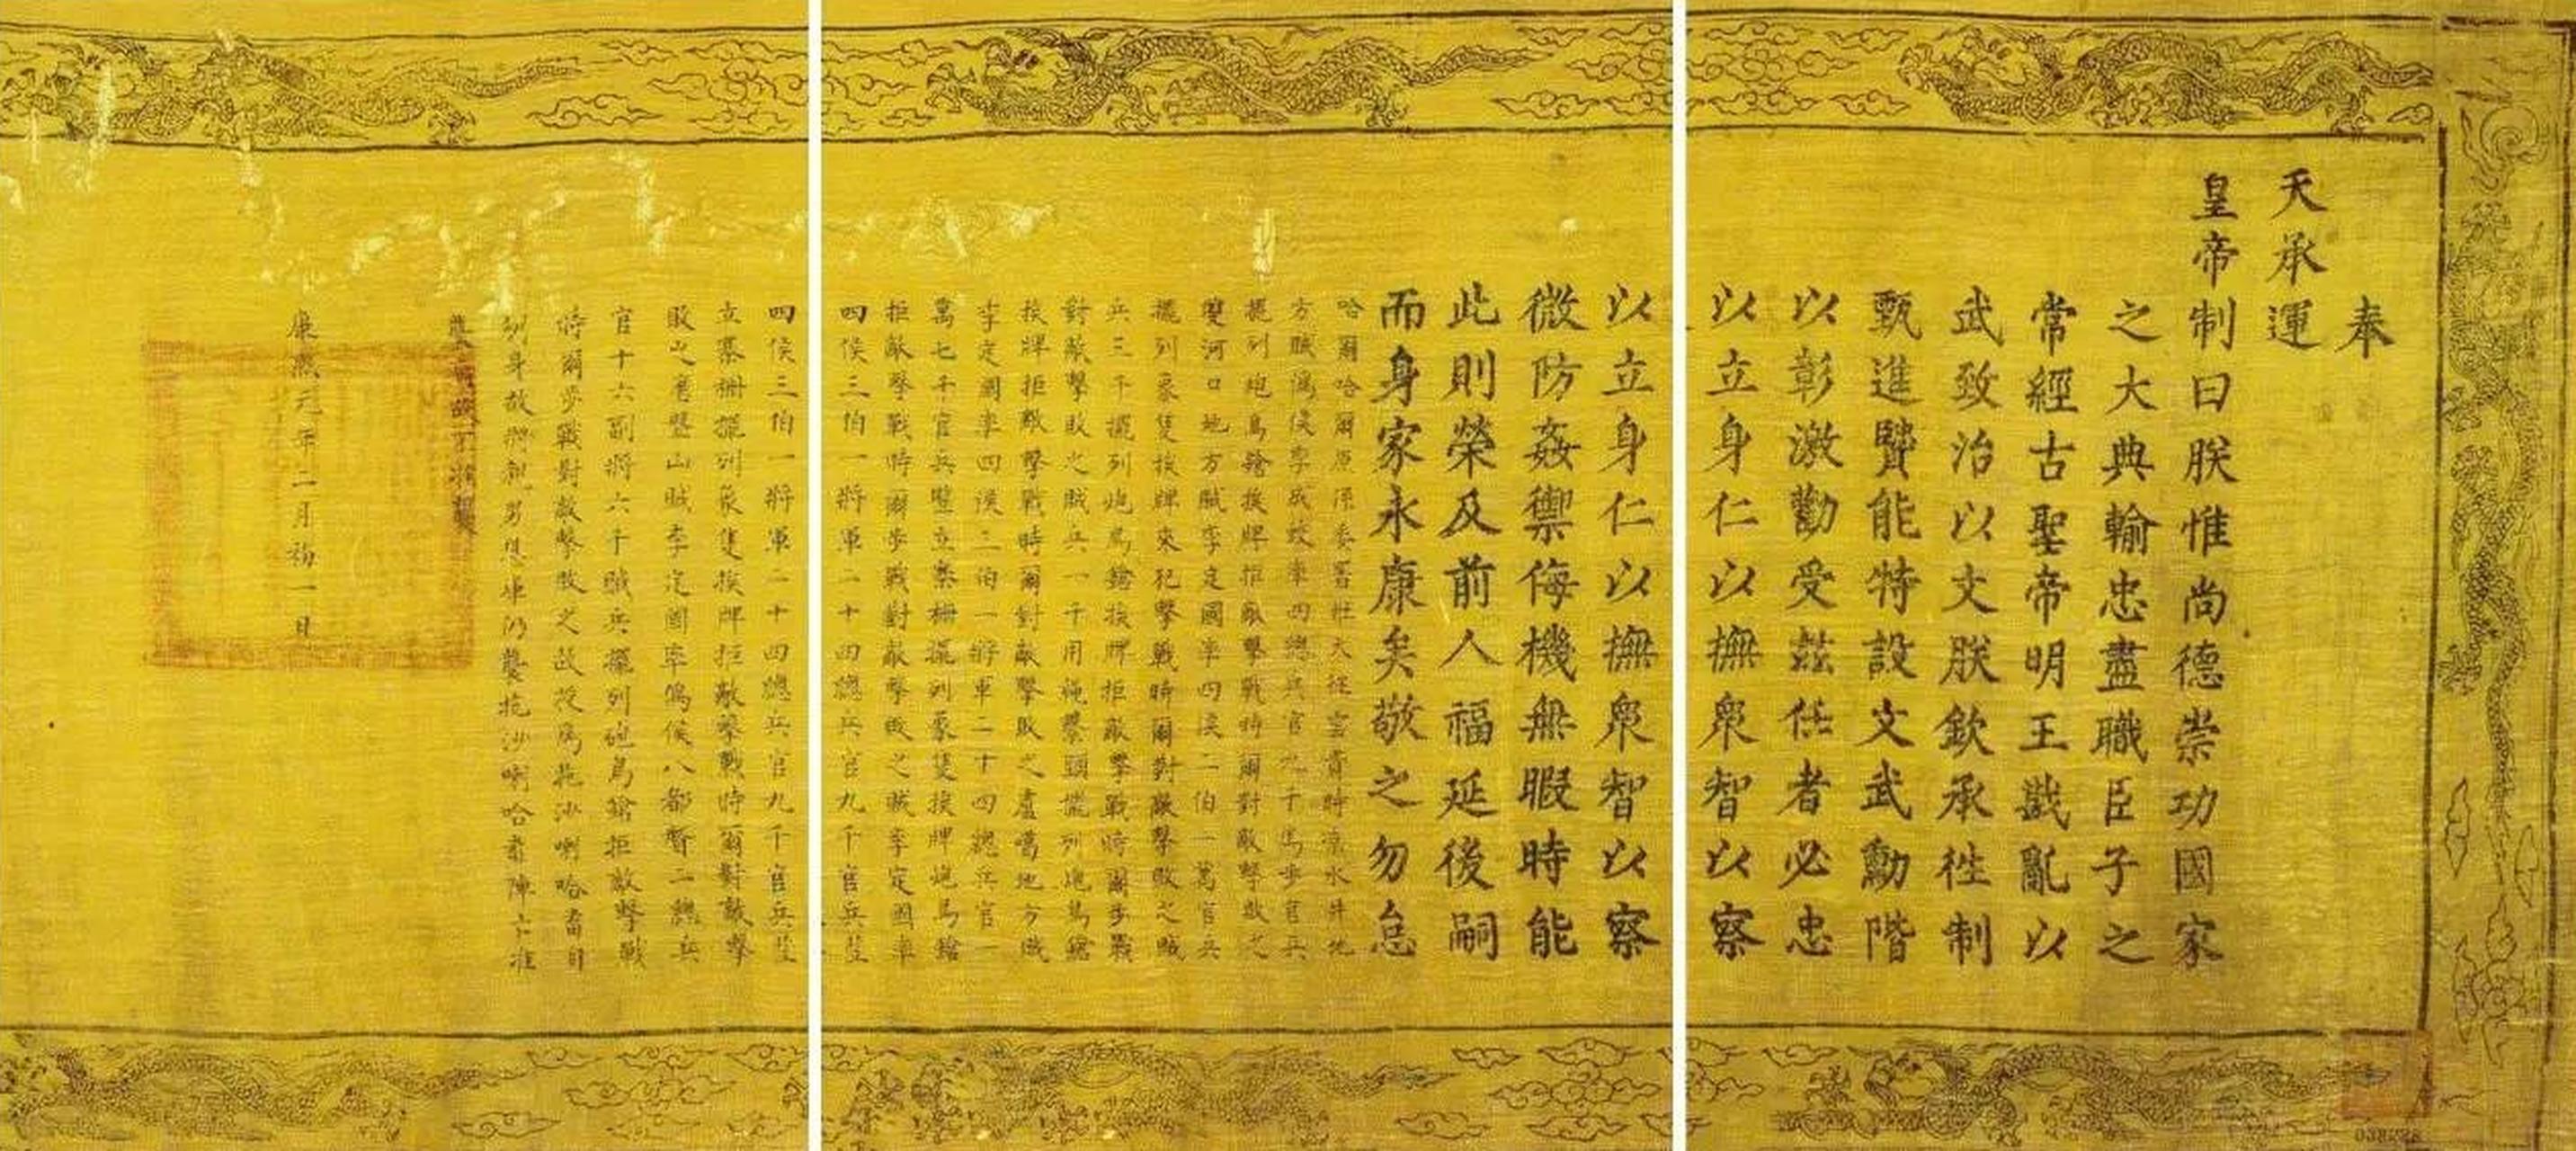 奉
天承運
皇帝制曰朕惟尚德崇功國家
之大典輸忠盡職臣子之
常經古聖帝明王戡亂以
武致治以文朕欽承徃制
甄進賢能特設文武勳階
以彰激勸受玆任者必忠
以立身仁以撫衆智以察
以立身仁以撫衆智以察
微防姦禦侮機無暇時能
此則榮及前人福延後嗣
而身家永康矣敬之勿怠
哈爾哈爾原係委署牲大征雲貴時涼水井地
方賊僞侯李成蛟率四總兵官九千馬步官兵
擺列炮鳥鎗挨牌拒敵擊戰時爾對敵擊敗之
雙河口地方賊李定國率四侯二伯一萬官兵
擺列象隻挨牌來犯擊戰時爾對敵擊敗之賊
兵三千擺列炮鳥鎗挨牌拒敵擊戰時爾步戰
對敵擊敗之賊兵一千用繩擊頭擺列炮鳥鎗
挨牌拒敵擊戰時爾對敵擊敗之盧噶地方賊
李定國率四侯三伯一將軍二十四總兵官一
萬七千官兵豎立寨柵擺列象隻挨牌炮鳥鎗
拒敵擊戰時爾步戰對敵擊敗之賊李定國率
四侯三伯一將軍二十四總兵官九千官兵豎
四侯三伯一將軍二十四總兵官九千官兵豎
立寨柵擺列象隻挨牌拒敵擊戰時爾對敵擊
敗之磨盤山賊李定國率僞侯八都督二總兵
官十六副將六千賊兵擺列炮鳥鎗拒敵擊戰
時爾步戰對敵擊敗之故授爲拖沙喇哈番自
身故將親男 仍襲拖沙喇哈番陣亡准
襲
康熙元年二月初一日